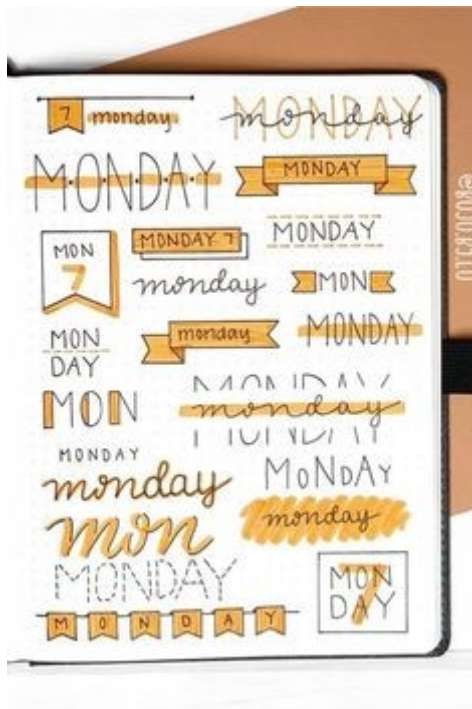 7 monday
MONDAY
monday
MONDAY
MONDAY
MON
7
MONDAY 7
MONDAY
monday
MON
MON
DAY
monday
MONDAY
MON
MONDAY
monday
MONDAY
monday
MoNDAy
mon
monday
MONDAY
MON
DAY
7
MONDAY